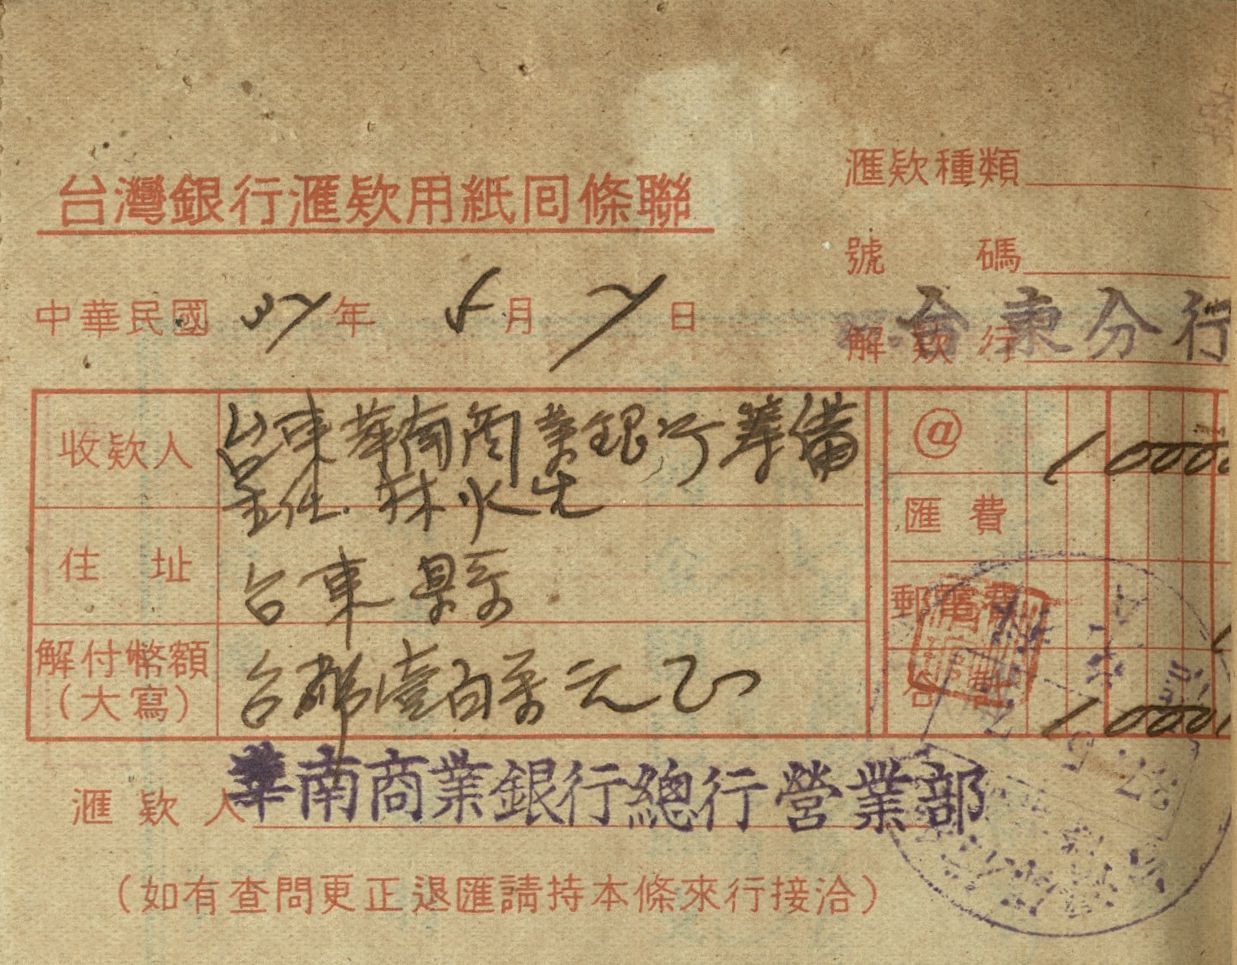 台灣銀行滙欵用紙囘條聯
滙欵種類
號碼
中華民國 37年 5月 7日
解欵行 台東分行
收欵人 台東華南商業銀行籌備
主任 林火生
@ 1000
滙費
住址 台東縣
郵電費
解付幣額
(大寫) 台幣壹百萬元正
合計 1000
滙欵人 華南商業銀行總行營業部
(如有查問更正退匯請持本條來行接洽)